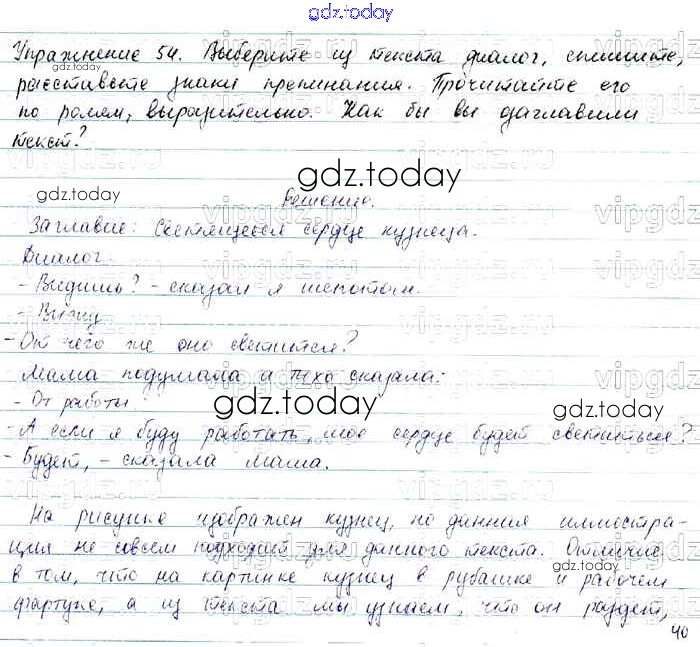 gdz.today
Упражнение 54. Выберите из текста диалог, спишите,
расставьте знаки препинания. Прочитайте его
по ролям, выразительно. Как бы вы озаглавили
текст?
Решение.
Заглавие: Светящееся сердце кузнеца.
Диалог.
- Видишь? - сказал я шепотом.
- Вижу
- От чего же оно светится?
Мама подумала и тихо сказала:
- От работы.
- А если я буду работать, мое сердце будет светиться?
- Будет, - сказала мама.
На рисунке изображен кузнец, но данная иллюстра-
ция не совсем подходит для данного текста. Отличие
в том, что на картинке кузнец в рубашке и рабочем
фартуке, а из текста мы узнаем, что он раздет,
40
gdz.today
gdz.today
gdz.today
gdz.today
gdz.today
gdz.today
gdz.today
gdz.today